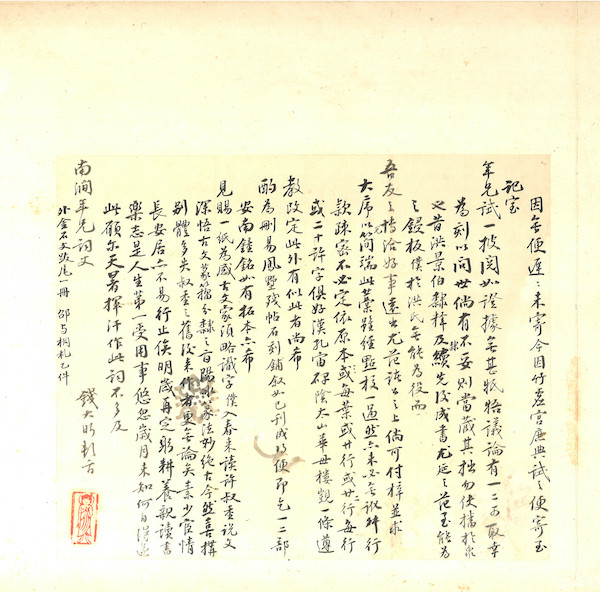 因無便遲遲未寄今因竹君宮庶典試之便寄至
記室
年兄試一披閱如證據無甚牴牾議論有一二可取幸
為刻以問世倘有不妥則當藏其拙勿使播於衆
也昔洪景伯隸釋及隸續先後成書尤延之范至能為
之鋟板僕於洪氏無能為役而
吾友之博洽好事遠出尤范諸公之上倘可付梓並求
大序以簡端此藁雖經點校一過然亦未必無訛誤行
款疎密不必定依原本或每葉或廿行或廿行每行
或二十許字俱好漢孔宙碑陰大山華母樓觀一條遵
教改定此外有似此者尚希
酌為刪易鳳墅殘帖石刻鋪敘如已刊成得便即乞一二部
安南鐘銘如有拓本亦希
見賜一紙為感古文家須略識字僕入春來讀許叔重說文
深悟古文篆籀分隸之旨陽冰篆法妙絕古今然喜搆
別體多失叔重之舊後來作者更無論矣素少宦情
長安居亦不易行止俟明歲再定躬耕養親讀書
樂志是人生第一受用事悠忽歲月未知何日得遂
此願尔天暑揮汗作此詞不多及
南澗年兄詞丈
錢大昕頓首
外金石文跋尾一冊 邵與桐札乙件